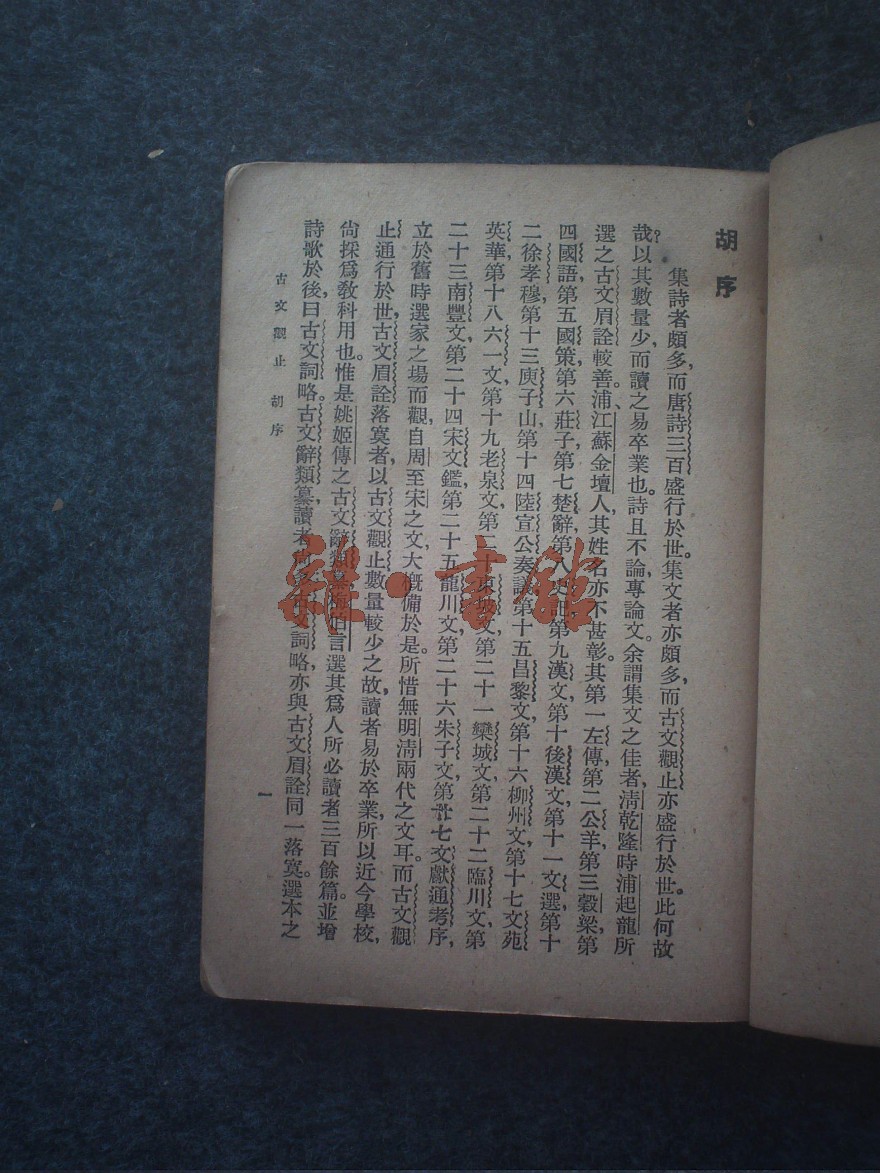 胡序
集詩者頗多，而唐詩三百盛行於世。集文者亦頗多，而古文觀止亦盛行於世。此何故
哉。以其數量少，而讀之易卒業也。詩且不論，專論文。余謂集文之佳者，清乾隆時浦起龍所
選之古文眉詮較善。浦、江蘇金壇人，其姓名亦不甚彰。其第一左傳，第二公羊，第三穀梁，第
四國語，第五國策，第六莊子，第七楚辭，第八史記，第九漢文，第十後漢文，第十一文選，第十
二徐孝穆，第十三庾子山，第十四陸宣公奏議，第十五昌黎文，第十六柳州文，第十七文苑
英華，第十八六一文，第十九老泉文，第二十東坡文，第二十一欒城文，第二十二臨川文，第
二十三南豐文，第二十四宋文鑑，第二十五龍川文，第二十六朱子文，第廿七文獻通考序，
立於舊時選家之場而觀，自周至宋之文，大概備於是。所惜無明清兩代之文耳。而古文觀
止通行於世，古文眉詮落寞者，以古文觀止數量較少之故，讀者易於卒業，所以近今學校，
尙採爲敎科用也。惟是姚姬傳之古文辭類纂，梅伯言選其爲人所必讀者三百餘篇。並增
詩歌於後，曰古文詞略。古文辭類纂讀者尙多，古文詞略，亦與古文眉詮同一落寞。選本之
古文觀止 胡序
一
雜·書館